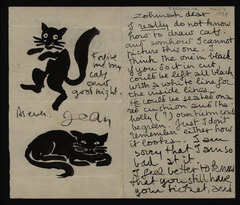 Forgive
me my
cats
paws
goodnight.
Joan
Zohmah dear
I really do not know
how to draw cats
and somehow I cannot
picture this one. I
think the one in black
if you do it in cut
could be left all black
with a white line for
the inside lines.
He could be seated on a
red cushion and the
holly (?) over him could
be green. Just I don't
remember either how
it looks. I am
sorry that I am so
bad at it.
I feel better to know
that you still have
your ticket, and